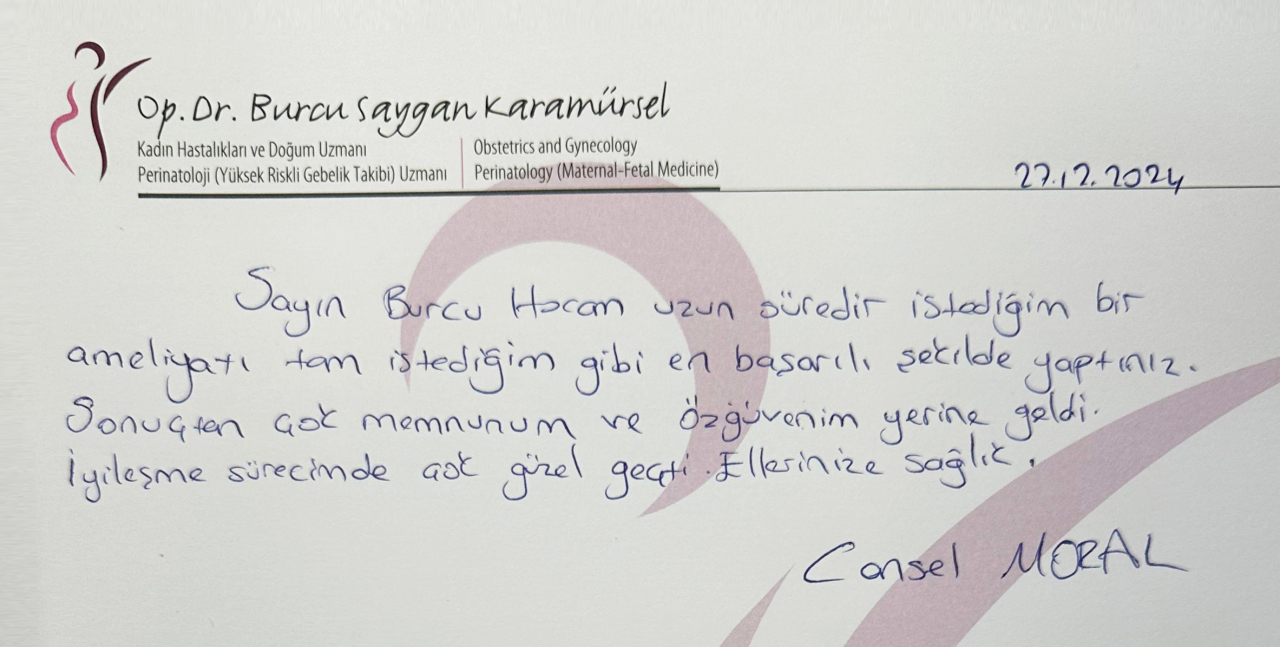 Op. Dr. Burcu Saygan Karamürsel
Kadın Hastalıkları ve Doğum Uzmanı
Perinatoloji (Yüksek Riskli Gebelik Takibi) Uzmanı
Obstetrics and Gynecology
Perinatology (Maternal-Fetal Medicine)
27.12.2024
Sayın Burcu Hocam uzun süredir istediğim bir
ameliyatı tam istediğim gibi en başarılı şekilde yaptınız.
Sonuçtan çok memnunum ve özgüvenim yerine geldi.
İyileşme sürecimde çok güzel geçti. Ellerinize sağlık.
Cansel MORAL